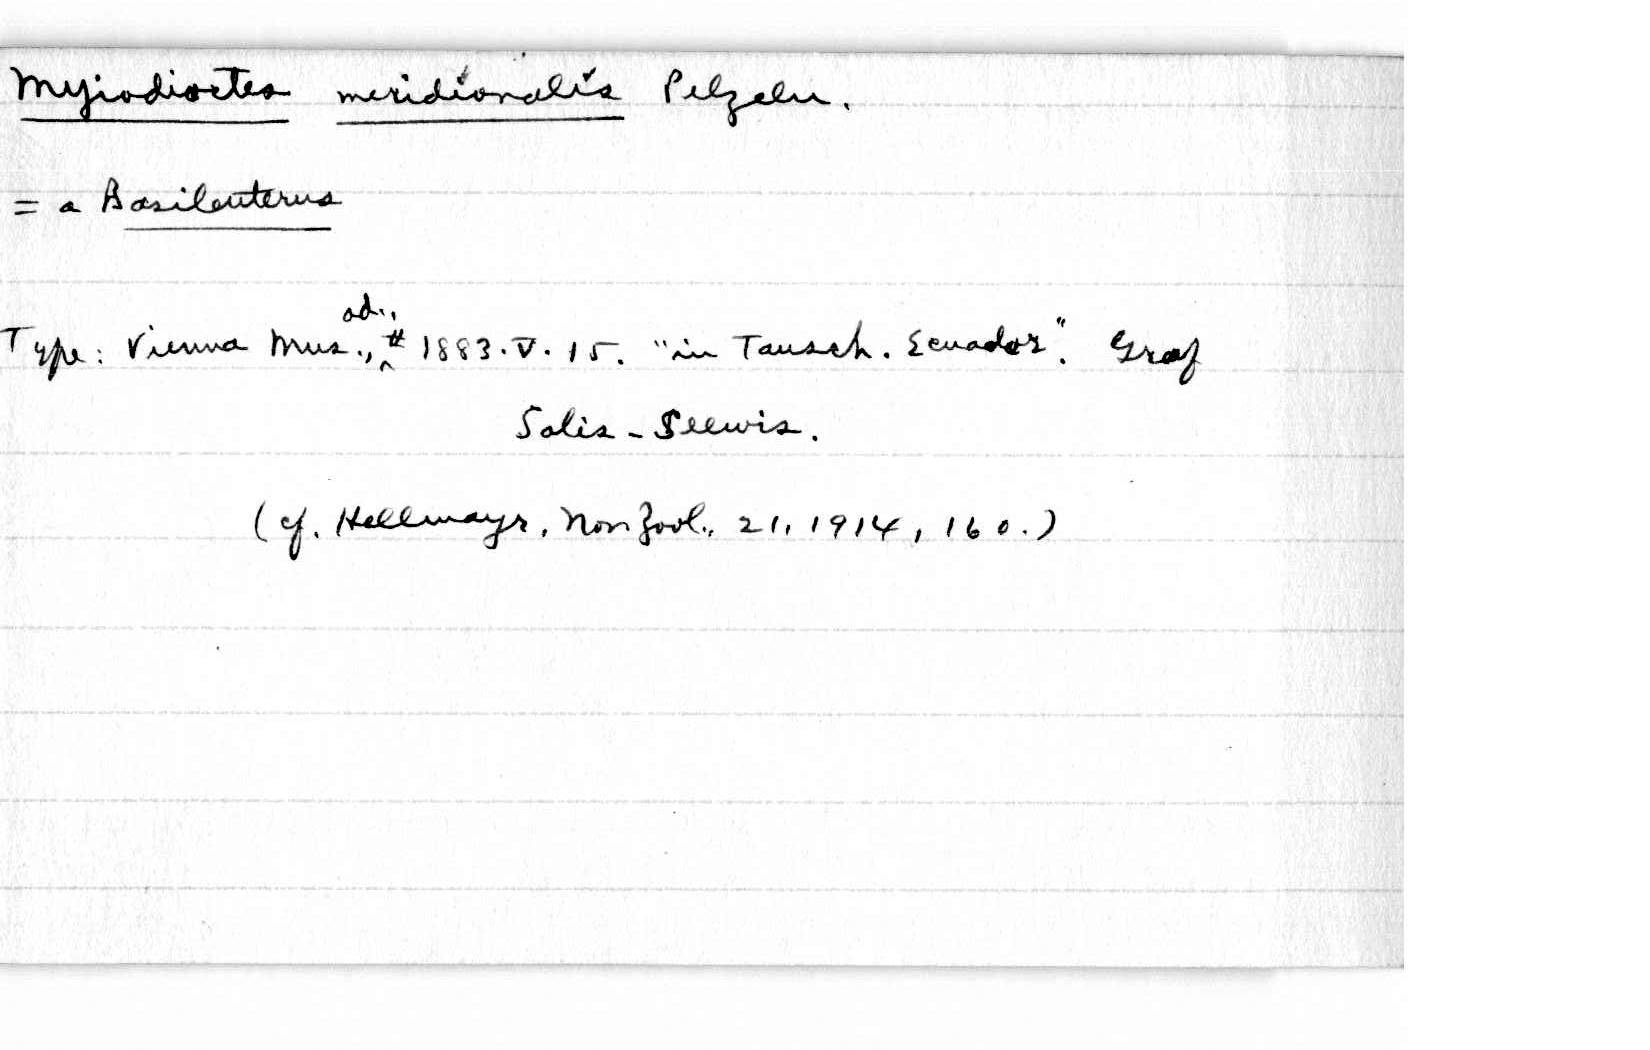 Myiodioctes meridionalis Pelzeln.
= a Basileuterus
Type: Vienna Mus., ad., # 1883.V.15. "in Tausch. Ecuador". Graf
Salis-Seewis.
(cf. Hellmayr, Nov. Zool., 21, 1914, 160.)